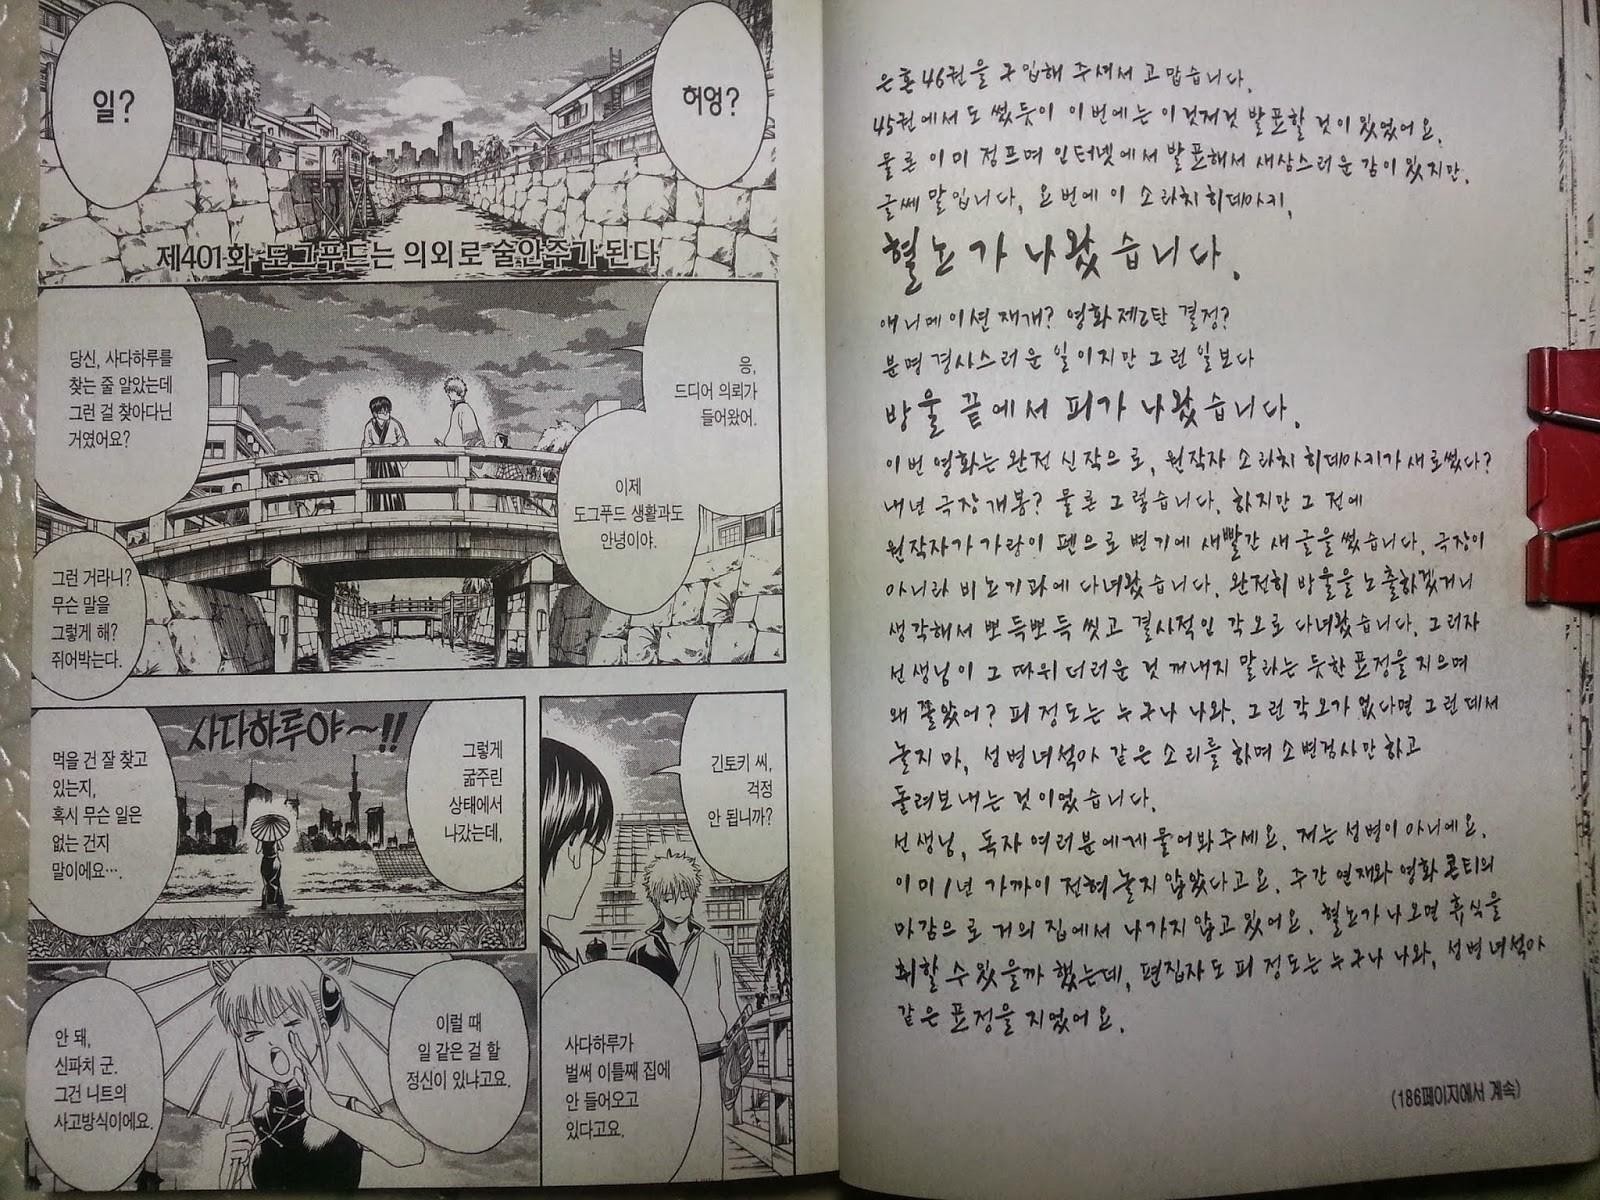 허엉?
일?
제401화 도그푸드는 의외로 술안주가 된다
응,
드디어 의뢰가
들어왔어.
이제
도그푸드 생활과도
안녕이야.
당신, 사다하루를
찾는 줄 알았는데
그런 걸 찾아다닌
거였어요?
그런 거라니?
무슨 말을
그렇게 해?
쥐어박는다.
긴토키 씨,
걱정
안 됩니까?
사다하루가
벌써 이틀째 집에
안 들어오고
있다고요.
그렇게
굶주린
상태에서
나갔는데,
사다하루야~!!
먹을 건 잘 찾고
있는지,
혹시 무슨 일은
없는 건지
말이에요….
이럴 때
일 같은 걸 할
정신이 있냐고요.
안 돼,
신파치 군.
그건 니트의
사고방식이에요.
은혼 46권을 구입해 주셔서 고맙습니다.
45권에서도 썼듯이 이번에는 이것저것 발표할 것이 있었어요.
물론 이미 점프며 인터넷에서 발표해서 새삼스러운 감이 있지만.
글쎄 말입니다, 요번에 이 소라치 히데아키,
혈뇨가 나왔습니다.
애니메이션 재개? 영화 제2탄 결정?
분명 경사스러운 일이지만 그런 일보다
방울 끝에서 피가 나왔습니다.
이번 영화는 완전 신작으로, 원작자 소라치 히데아키가 새로 썼다?
내년 극장 개봉? 물론 그렇습니다. 하지만 그 전에
원작자가 가랑이 펜으로 변기에 새빨간 새 글을 썼습니다. 극장이
아니라 비뇨기과에 다녀왔습니다. 완전히 방울을 노출하겠거니
생각해서 뽀득뽀득 씻고 결사적인 각오로 다녀왔습니다. 그러자
선생님이 그 따위 더러운 것 꺼내지 말라는 듯한 표정을 지으며
왜 쫄았어? 피 정도는 누구나 나와. 그런 각오가 없다면 그런 데서
놀지 마, 성병 녀석아 같은 소리를 하며 소변검사만 하고
돌려보내는 것이었습니다.
선생님, 독자 여러분에게 물어봐 주세요. 저는 성병이 아니에요.
이미 1년 가까이 전혀 놀지 않았다고요. 주간 연재와 영화 콘티의
마감으로 거의 집에서 나가지 않고 있어요. 혈뇨가 나오면 휴식을
취할 수 있을까 했는데, 편집자도 피 정도는 누구나 나와, 성병 녀석아
같은 표정을 지었어요.
(186페이지에서 계속)